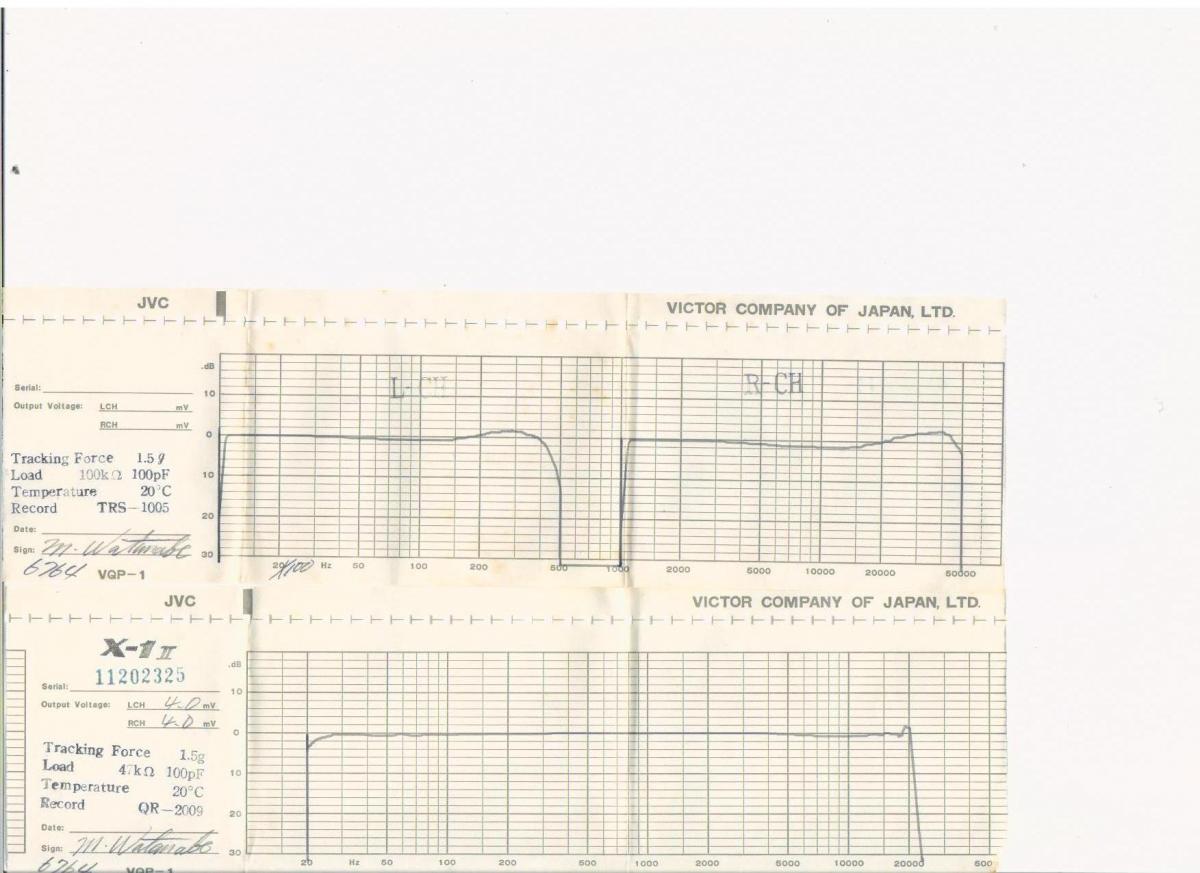 JVC
VICTOR COMPANY OF JAPAN, LTD.
.dB
L-CH
R-CH
Serial:
10
Output Voltage: LCH mV
RCH mV
0
Tracking Force 1.5g
Load 100kΩ 100pF
10
Temperature 20°C
Record TRS-1005
20
Date:
Sign: M. Watanabe
30
6764 VQP-1
20 X100 Hz 50 100 200 500 1000 2000 5000 10000 20000 50000
JVC
VICTOR COMPANY OF JAPAN, LTD.
X-1 II
.dB
11202325
Serial:
10
Output Voltage: LCH 4.0 mV
RCH 4.0 mV
0
Tracking Force 1.5g
Load 47kΩ 100pF
10
Temperature 20°C
Record QR-2009
20
Date:
Sign: M. Watanabe
30
6764 VQP-1
20 Hz 50 100 200 500 1000 2000 5000 10000 20000 500